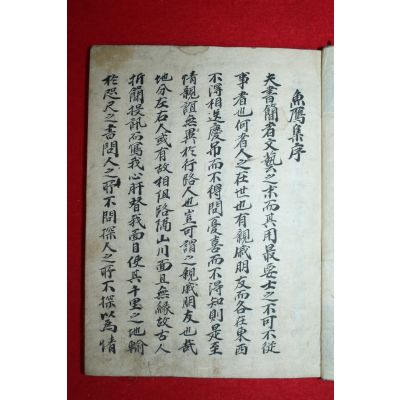 魚鴈集序
夫書簡者文藝之末而其用最要士之不可不從
事者也何者人之在世也有親戚朋友而各在東西
不得相送慶吊而不得問憂喜而不得知則是至
情親誼無異於行路人也豈可謂之親戚朋友也哉
地分左右人或有故相阻路隔山川面且無緣故古人
折簡投訊而寫我心肝替我面目使其千里之地輸
於咫尺之書問人之所不問探人之所不探以爲情